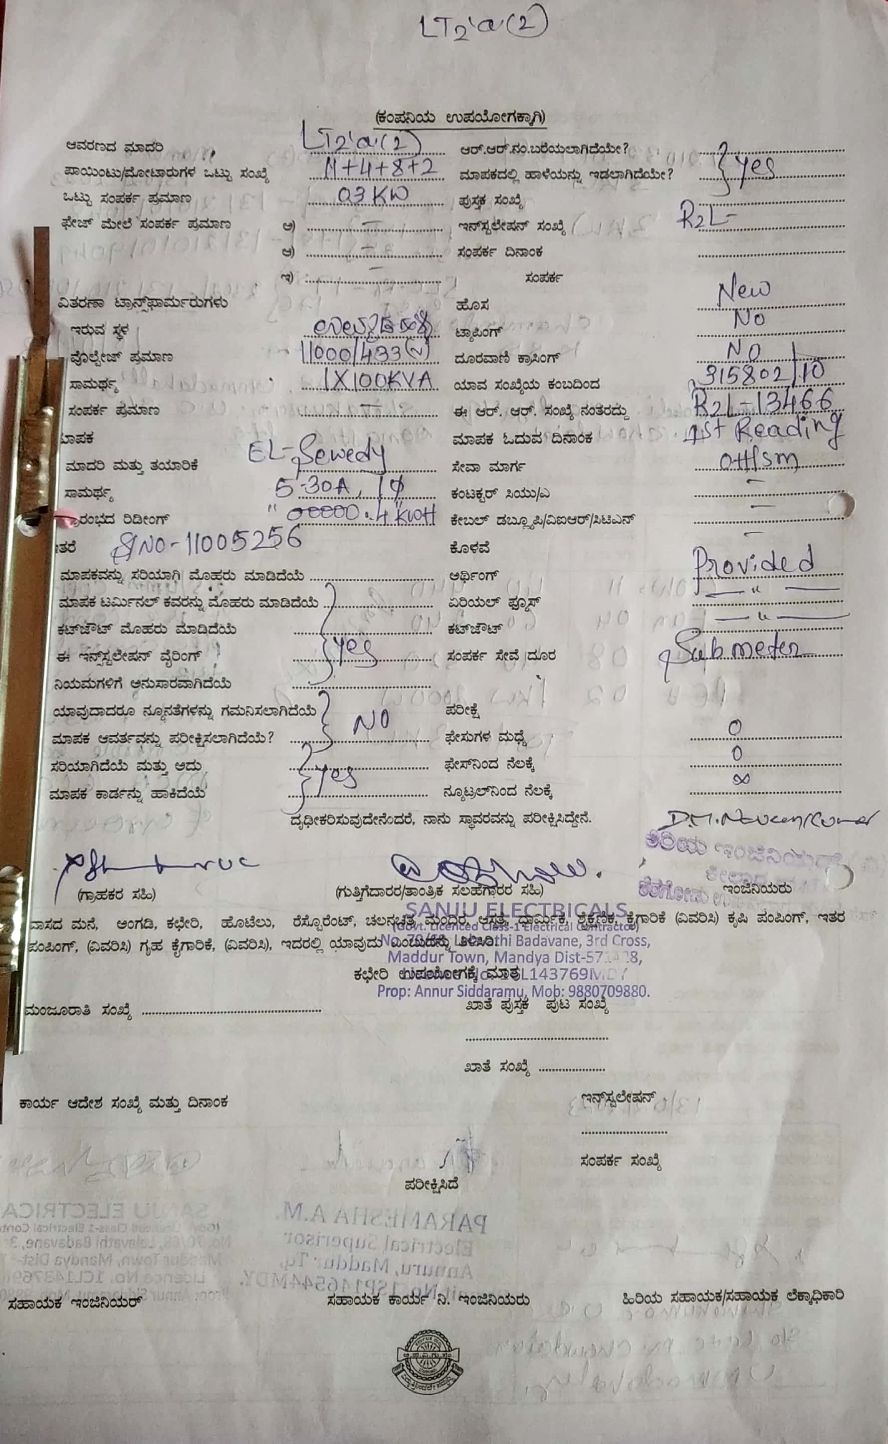 LT2'a'(2)
(ಕಂಪನಿಯ ಉಪಯೋಗಕ್ಕಾಗಿ)
ಆವರಣದ ಮಾದರಿ LT2'a'(2) ಆರ್.ಆರ್.ನಂ.ಬರೆಯಲಾಗಿದೆಯೇ?
ಪಾಯಿಂಟು/ಮೋಟಾರುಗಳ ಒಟ್ಟು ಸಂಖ್ಯೆ 11+4+8+2 ಮಾಪಕದಲ್ಲಿ ಹಾಳೆಯನ್ನು ಇಡಲಾಗಿದೆಯೇ? yes
ಒಟ್ಟು ಸಂಪರ್ಕ ಪ್ರಮಾಣ 03 KW ಪುಸ್ತಕ ಸಂಖ್ಯೆ
ಫೇಜ್ ಮೇಲೆ ಸಂಪರ್ಕ ಪ್ರಮಾಣ ಅ) – ಇನ್‌ಸ್ಟಲೇಷನ್ ಸಂಖ್ಯೆ R2L-
ಆ) – ಸಂಪರ್ಕ ದಿನಾಂಕ
ಇ) – ಸಂಪರ್ಕ
ವಿತರಣಾ ಟ್ರಾನ್ಸ್‌ಫಾರ್ಮರುಗಳು ಹೊಸ New
ಇರುವ ಸ್ಥಳ ಟ್ಯಾಪಿಂಗ್ No
ವೋಲ್ಟೇಜ್ ಪ್ರಮಾಣ 11000/433(v) ದೂರವಾಣಿ ಕ್ರಾಸಿಂಗ್ NO
ಸಾಮರ್ಥ್ಯ 1X100KVA ಯಾವ ಸಂಖ್ಯೆಯ ಕಂಬದಿಂದ 315802/10
ಸಂಪರ್ಕ ಪ್ರಮಾಣ – ಈ ಆರ್. ಆರ್. ಸಂಖ್ಯೆ ನಂತರದ್ದು R2L-13466
ಮಾಪಕ ಮಾಪಕ ಓದುವ ದಿನಾಂಕ 1st Reading
ಮಾದರಿ ಮತ್ತು ತಯಾರಿಕೆ EL-Sewedy ಸೇವಾ ಮಾರ್ಗ
ಸಾಮರ್ಥ್ಯ 5-30A, 1φ ಕಂಟಕ್ಟರ್ ಸಿಯು/ಎ –
ಪ್ರಾರಂಭದ ರಿಡೀಂಗ್ 00000.4 KWH ಕೇಬಲ್ ಡಬ್ಲ್ಯೂಪಿ/ವಿಐಆರ್/ಸಿಟಿಎನ್ –
ಇತರೆ S/NO-11005256 ಕೊಳವೆ –
ಮಾಪಕವನ್ನು ಸರಿಯಾಗಿ ಮೊಹರು ಮಾಡಿದೆಯೆ ಅರ್ಥಿಂಗ್ Provided
ಮಾಪಕ ಟರ್ಮಿನಲ್ ಕವರನ್ನು ಮೊಹರು ಮಾಡಿದೆಯೆ ಏರಿಯಲ್ ಫ್ಯೂಸ್ — " —
ಕಟ್‌ಔಟ್ ಮೊಹರು ಮಾಡಿದೆಯೆ ಕಟ್‌ಔಟ್ — " —
ಈ ಇನ್‌ಸ್ಟಲೇಷನ್ ವೈರಿಂಗ್ yes ಸಂಪರ್ಕ ಸೇವೆ ದೂರ Submeter
ನಿಯಮಗಳಿಗೆ ಅನುಸಾರವಾಗಿದೆಯೆ
ಯಾವುದಾದರೂ ನ್ಯೂನತೆಗಳನ್ನು ಗಮನಿಸಲಾಗಿದೆಯೆ NO ಪರೀಕ್ಷೆ
ಮಾಪಕ ಆವರ್ತವನ್ನು ಪರೀಕ್ಷಿಸಲಾಗಿದೆಯೆ? ಫೇಸುಗಳ ಮಧ್ಯೆ 0
ಸರಿಯಾಗಿದೆಯೆ ಮತ್ತು ಅದು yes ಫೇಸ್‌ನಿಂದ ನೆಲಕ್ಕೆ 0
ಮಾಪಕ ಕಾರ್ಡನ್ನು ಹಾಕಿದೆಯೆ ನ್ಯೂಟ್ರಲ್‌ನಿಂದ ನೆಲಕ್ಕೆ ∞
ದೃಢೀಕರಿಸುವುದೇನೆಂದರೆ, ನಾನು ಸ್ಥಾವರವನ್ನು ಪರೀಕ್ಷಿಸಿದ್ದೇನೆ. D.M.Naveen Kumar
ಕಿರಿಯ ಇಂಜಿನಿಯರ್
(ಗ್ರಾಹಕರ ಸಹಿ) (ಗುತ್ತಿಗೆದಾರರ/ತಾಂತ್ರಿಕ ಸಲಹೆಗಾರರ ಸಹಿ) ಇಂಜಿನಿಯರು
SANJU ELECTRICALS
ವಾಸದ ಮನೆ, ಅಂಗಡಿ, ಕಛೇರಿ, ಹೊಟೆಲು, ರೆಸ್ಟೊರೆಂಟ್, ಚಲನಚಿತ್ರ ಮಂದಿರ, ಆಸ್ಪತ್ರೆ, ಧಾರ್ಮಿಕ, ಶೈಕ್ಷಣಿಕ, ಕೈಗಾರಿಕೆ (ವಿವರಿಸಿ) ಕೃಷಿ ಪಂಪಿಂಗ್, ಇತರ
(Govt. Licenced Class-1 Electrical Contractor)
ಪಂಪಿಂಗ್, (ವಿವರಿಸಿ) ಗೃಹ ಕೈಗಾರಿಕೆ, (ವಿವರಿಸಿ), ಇದರಲ್ಲಿ ಯಾವುದು ಎಂಬುದನ್ನು ತಿಳಿಸಿರಿ.
No. 70/68, Lelavathi Badavane, 3rd Cross,
Maddur Town, Mandya Dist-571428,
ಕಛೇರಿ ಉಪಯೋಗಕ್ಕೆ ಮಾತ್ರ
Licence No. 1CL143769MDY
Prop: Annur Siddaramu, Mob: 9880709880.
ಮಂಜೂರಾತಿ ಸಂಖ್ಯೆ ಖಾತೆ ಪುಸ್ತಕ ಪುಟ ಸಂಖ್ಯೆ
ಖಾತೆ ಸಂಖ್ಯೆ
ಕಾರ್ಯ ಆದೇಶ ಸಂಖ್ಯೆ ಮತ್ತು ದಿನಾಂಕ ಇನ್‌ಸ್ಟಲೇಷನ್
ಸಂಪರ್ಕ ಸಂಖ್ಯೆ
ಪರೀಕ್ಷಿಸಿದೆ
ಸಹಾಯಕ ಇಂಜಿನಿಯರ್ ಸಹಾಯಕ ಕಾರ್ಯ ನಿ. ಇಂಜಿನಿಯರು ಹಿರಿಯ ಸಹಾಯಕ/ಸಹಾಯಕ ಲೆಕ್ಕಾಧಿಕಾರಿ